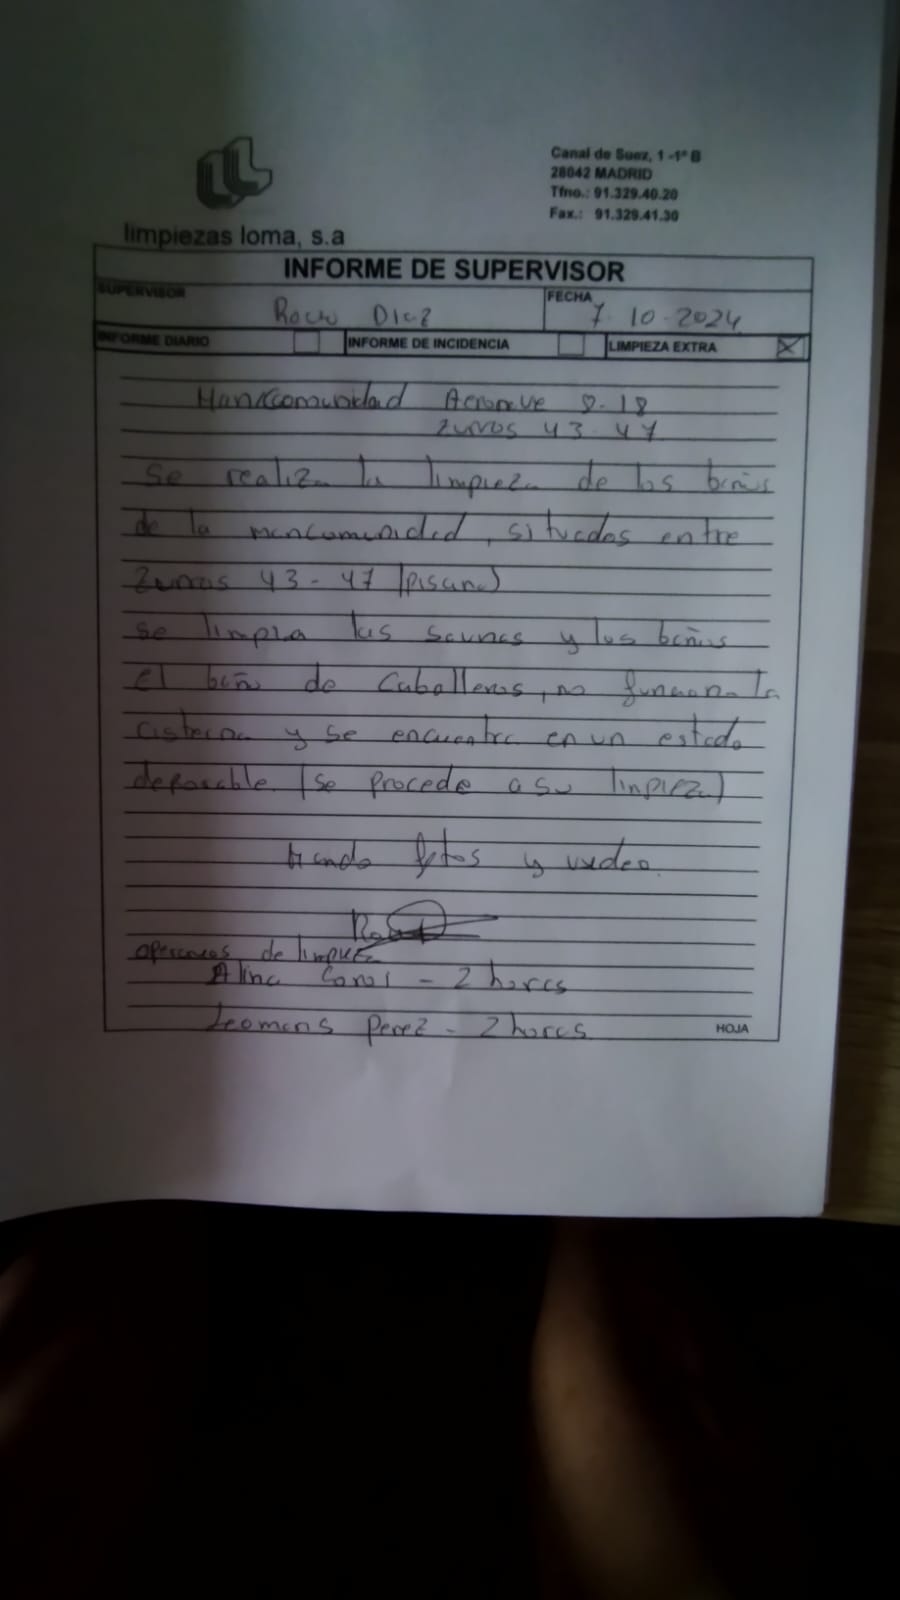 Canal de Suez, 1 -1º B
28042 MADRID
Tfno.: 91.329.40.20
Fax.: 91.329.41.30
limpiezas loma, s.a
INFORME DE SUPERVISOR
SUPERVISOR
Rocio Diaz
FECHA
7-10-2024
INFORME DIARIO
INFORME DE INCIDENCIA
LIMPIEZA EXTRA
Mancomunidad Aeronave 8-18
Zurros 43-47
Se realiza la limpieza de los baños
de la mancomunidad, situados entre
Zurros 43-47 (piscina)
se limpia las saunas y los baños
el baño de caballeros, no funciona la
cisterna y se encuentra en un estado
deposable. (se procede a su limpieza)
mando fotos y video.
operarias de limpieza
Alina - 2 horas
Perez - 2 horas
HOJA